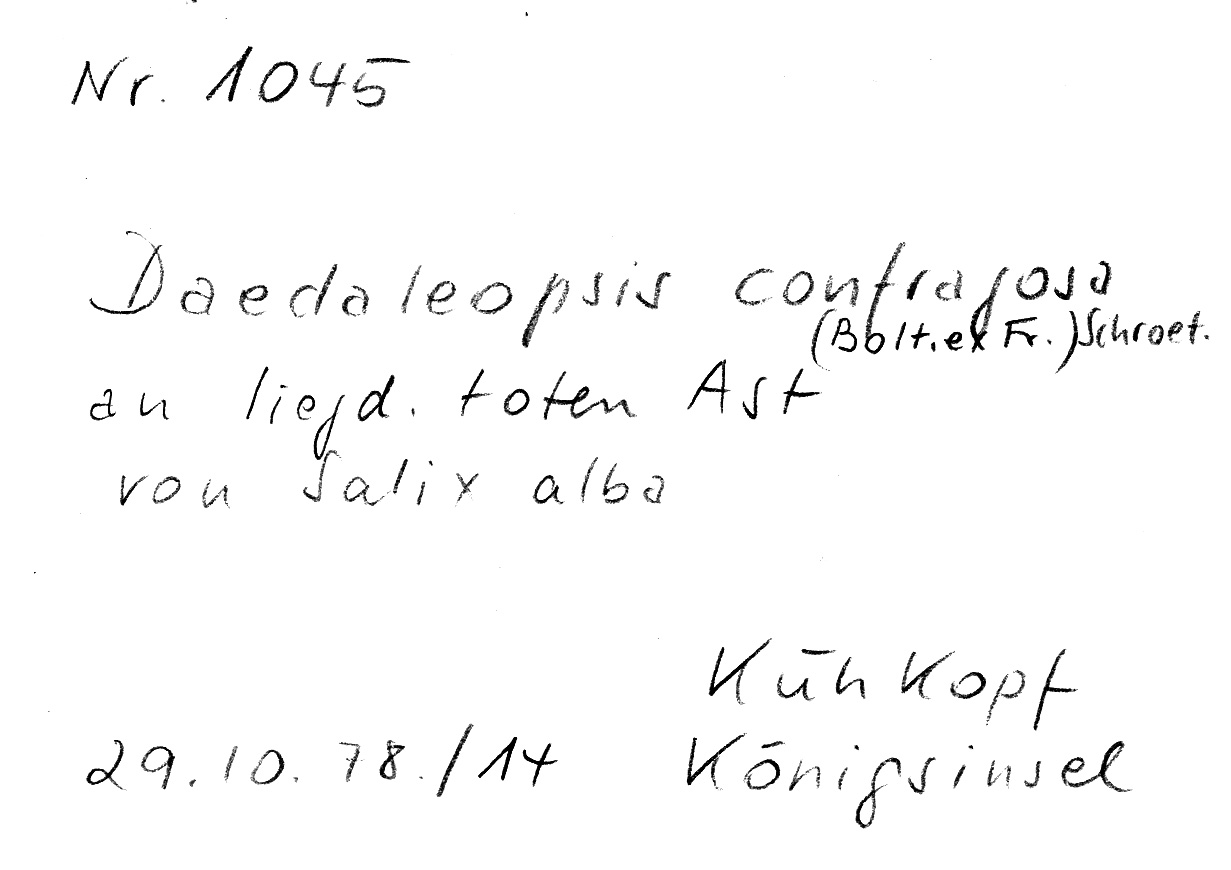 Nr. 1045
Daedaleopsis confragosa
(Bolt. ex Fr.) Schroet.
an liegd. toten Ast
von Salix alba
Kühkopf
29.10.78./14 Königsinsel